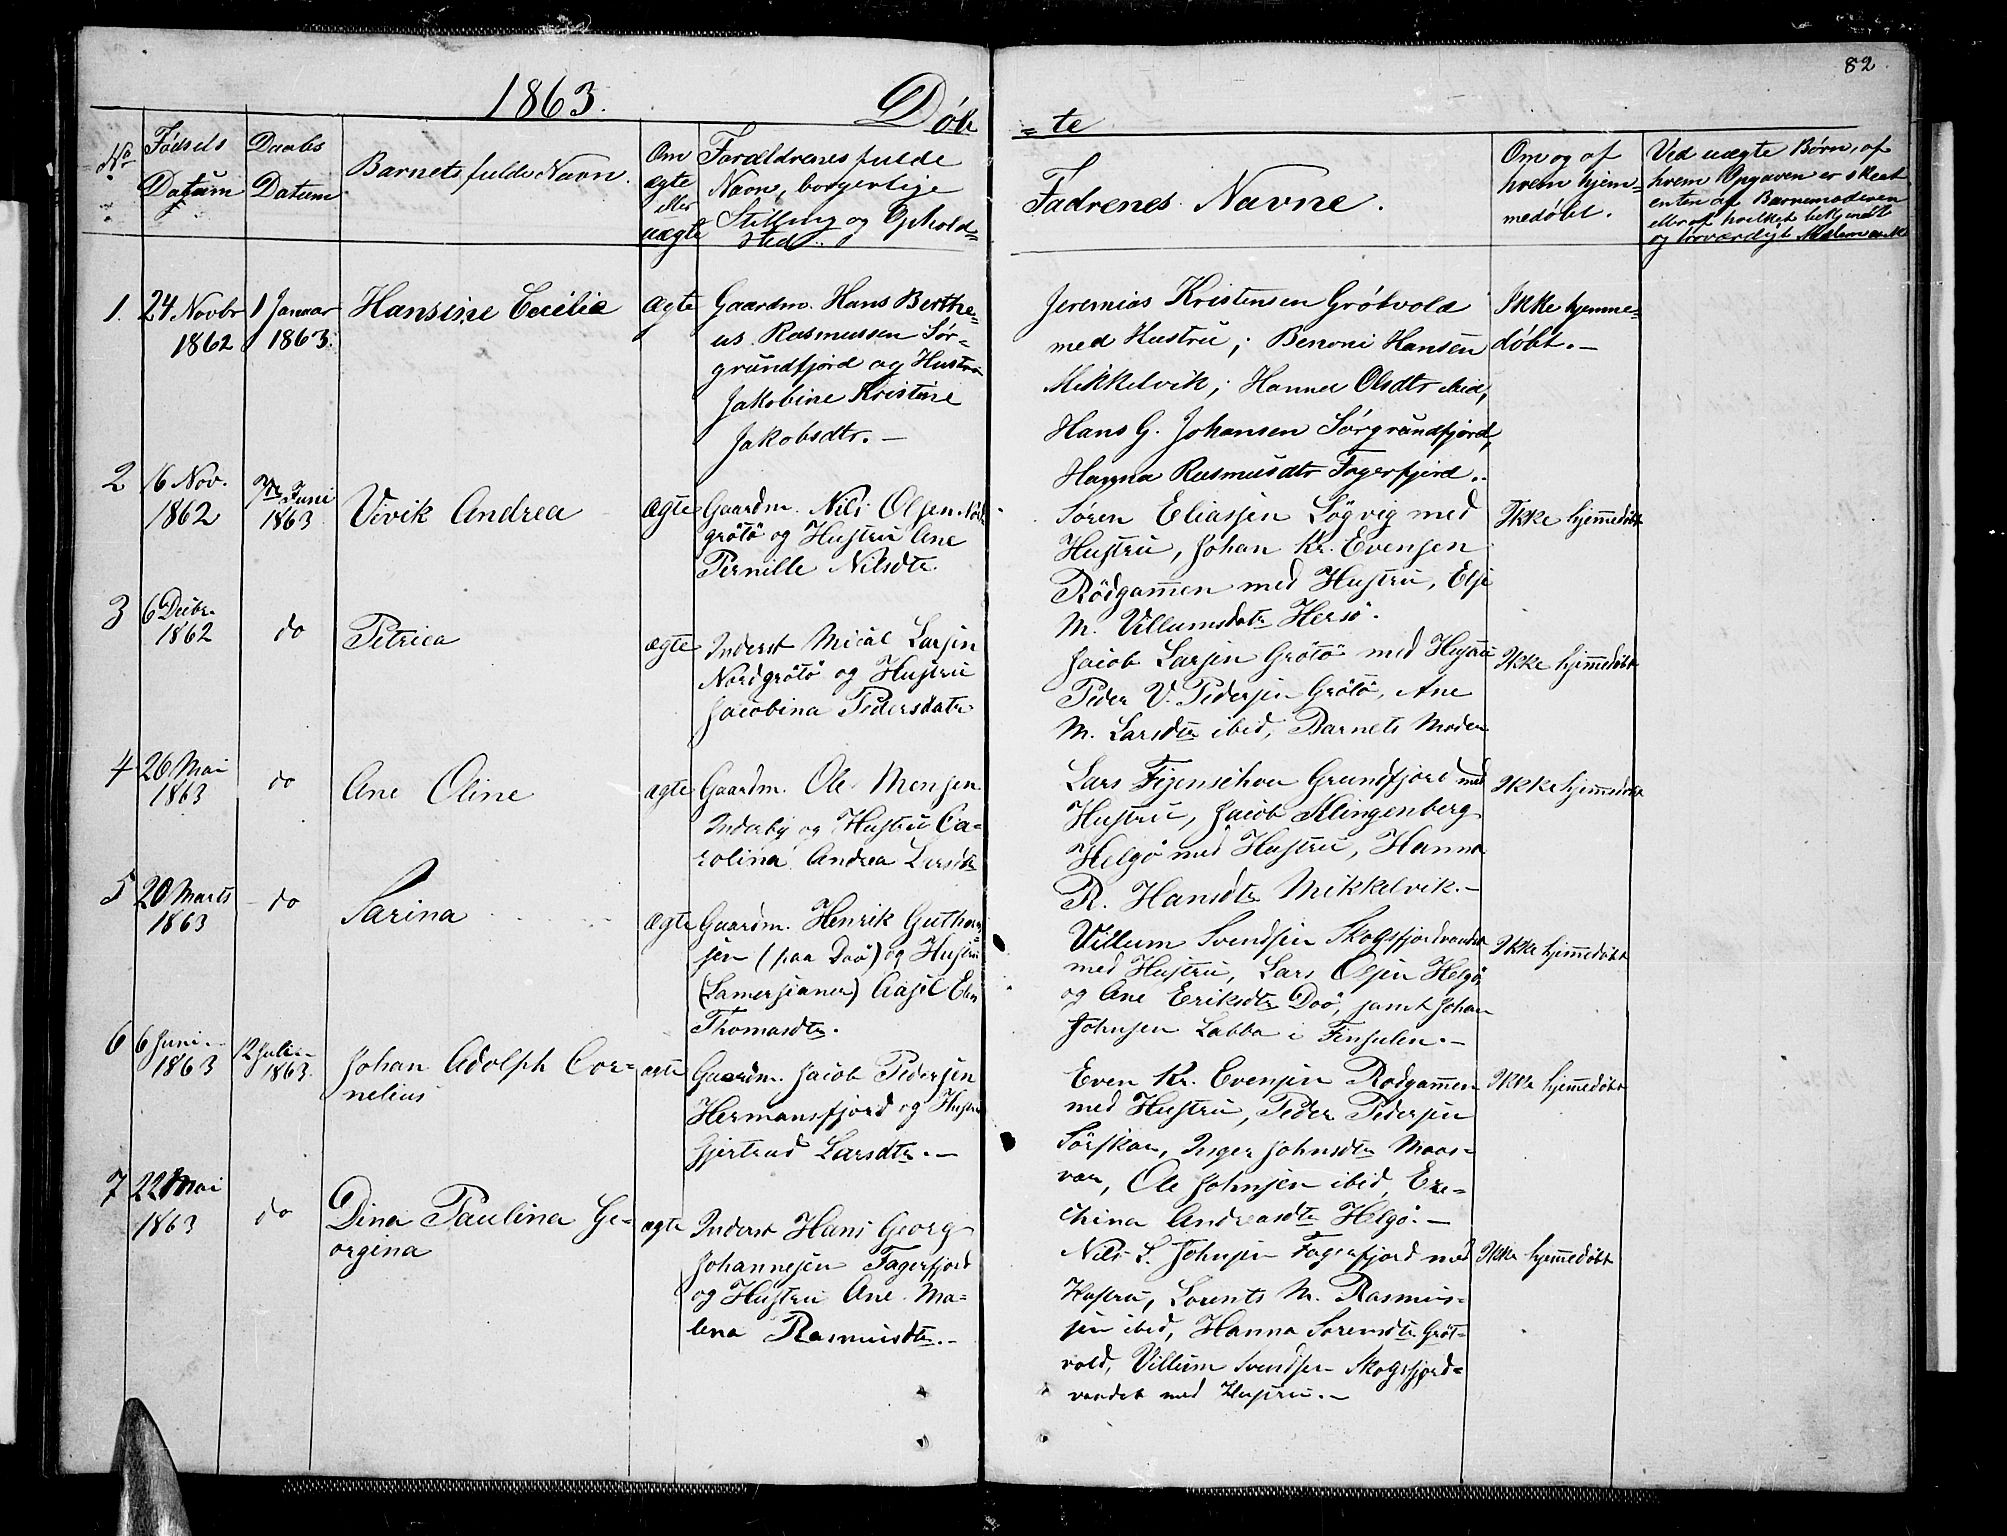 82
1863. Døb
=te
No
Fødsels
Datum
Daabs
Datum
Barnets fulde Navn.
Om
ægte
eller
uægte
Forældrenes fulde
Navn, borgerlige
Stilling og Ophold=
sted.
Fadrenes Navne.
Om og af
hvem hjem=
medøbt.
Ved uægte Børn, af
hvem Opgaven er skeet
enten af Barnemoderen
eller af hvilket bekjendt
og troværdigt
1.
24 Novbr
1862
1 Januar
1863.
Hansine Cecilie
Ægte
Gaardm. Hans Berthe=
us Rasmussen Sør=
grundfjord og Hustru
Jakobine Kristine
Jakobsdtr. —
Jeremias Kristensen Grötvold
med Hustru; Benoni Hansen
Mikkelvik; Hanna Olsdtr ibid,
Hans G. Johansen Sørgrundfjord,
Hanna Rasmusdtr Fagerfjord.
Ikke hjemme=
døbt. —
2
16 Nov.
1862
7de Juni
1863
Vivik Andrea
Ægte
Gaardm. Nils Olsen Nord
grötö og Hustru Ane
Pernille Nilsdtr
Søren Eliassen Lögvig med
Hustru, Johan Kr. Evensen
Rödgammen med Hustru, Else
M. Villumsdatr Hersö.
Ikke hjemmedøbt
3
6 Decbr.
1862
do
Petrica
ægte
Inderst Mical Larsen
Nordgrötö og Hustru
Jacobina Pedersdatr
Jacob Larsen Grötö med Hustru
Peder V. Pedersen Grötö, Ane
M. Larsdtr ibid, Barnets Moder
Ikke hjemmedøbt
4
26 Mai
1863
do
Ane Oline
ægte
Gaardm. Ole Monsen
Inderby og Hustru Ca=
rolina Andrea Larsdtr
Lars Figenschou Grundfjord med
Hustru, Jacob Klingenberg
Helgö med Hustru, Hanna
R. Hansdtr Mikkelvik. —
Ikke hjemmedøbt
5
20 Marts
1863
do
Sarina
Ægte
Gaardm. Henrik Guthorm
sen (paa Daö) og Hustru
(Samersianer) Aasil Elen
Thomasdtr.
Villum Svendsen Skogsfjordvandet
med Hustru, Lars Olsen Helgö
og Ane Eriksdtr Daö, samt Johan
Johnsen Labba i Finsulen. —
Ikke hjemmedøbt
6
6 Juni
1863
12 Juli
1863.
Johan Adolph Cor=
nelius
ægte
Gaardm. Jacob Pedersen
Hermansfjord og Hustru
Gjertrud Larsdtr. —
Even Kr. Evensen Rodgammen
med Hustru, Peder Pedersen
Sörskar, Inger Johnsdtr Maas=
vær, Ole Johnsen ibid, Ere=
china Andreasdtr Helgö. —
Ikke hjemmedøbt
7
22 Mai
1863
do
Dina Paulina Ge=
orgina
ægte
Inderst Hans Georg
Johannesen Fagerfjord
og Hustru Ane Ma=
lena Rasmusdtr. —
Nils L. Johnsen Fagerfjord med
Hustru, Lorents M. Rasmus=
sen ibid, Hanna Sorensdtr Gröt=
vold, Villum Svendsen Skogsfjord=
vandet med Hustru. —
Ikke hjemmedøbt